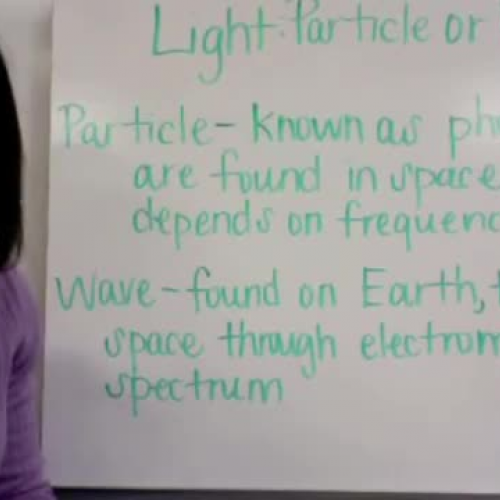 Light: Particle or
Particle - known as pho
are found in space
depends on frequenc
Wave - found on Earth, t
space through electrom
spectrum